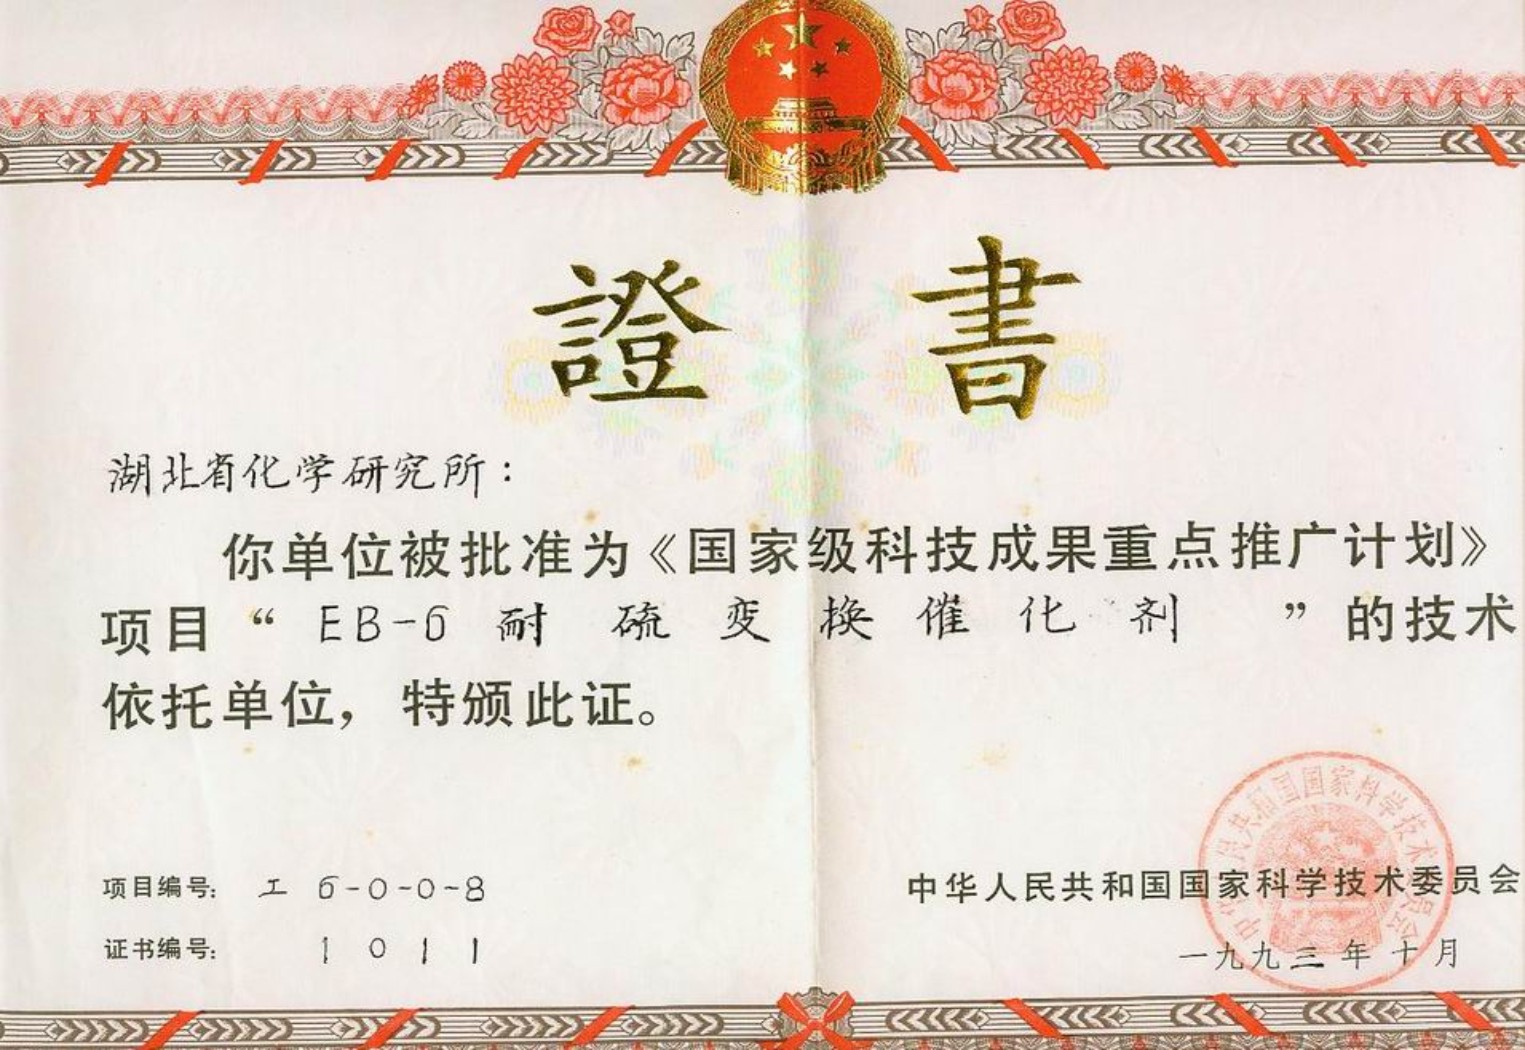 證書
湖北省化学研究所：
你单位被批准为《国家级科技成果重点推广计划》
项目“EB-6耐硫变换催化剂”的技术
依托单位，特颁此证。
项目编号：工6-0-0-8
证书编号：1011
中华人民共和国国家科学技术委员会
一九九三年十月
中华人民共和国国家科学技术委员会